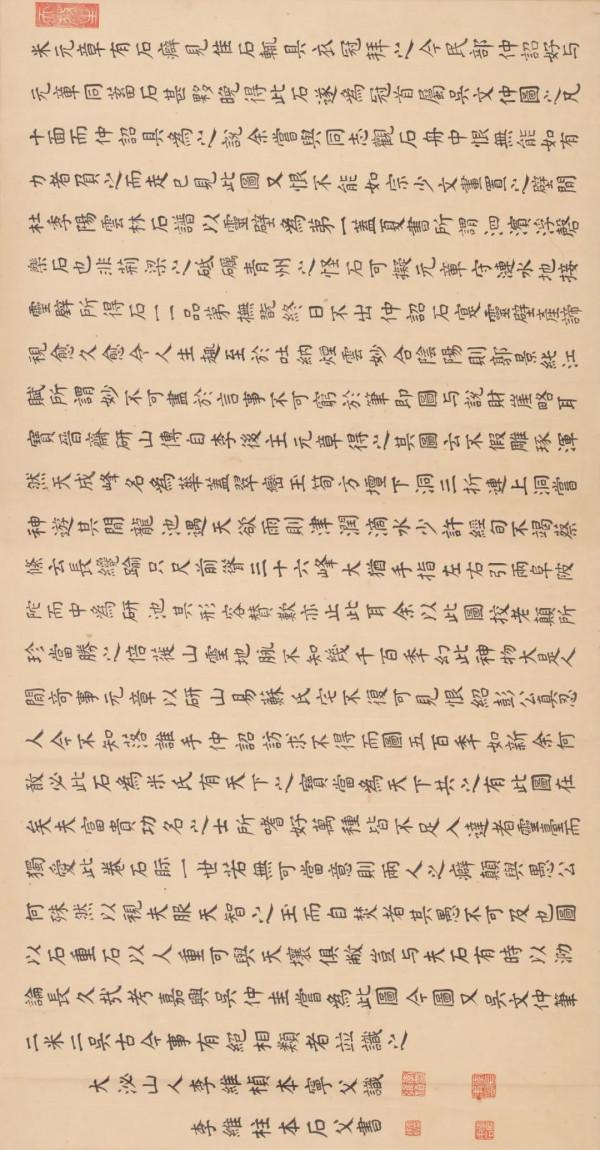 米元章有石癖見隹石輒具衣冠拜之今民部仲詔好与
元章同蓄石甚夥晚得此石遂為冠首屬吳文仲圖之凡
十面而仲詔具為之說余嘗與同志觀石舟中恨無能如有
力者負之而走已見此圖又恨不能如宗少文畫置之壁間
杜季陽雲林石譜以靈壁為第一蓋夏書所謂泗濱浮磬
樂石也非荊梁之砥礪青州之怪石可擬元章守漣水地接
靈壁所得石一一品第撫翫終日不出仲詔石寔靈壁產諦
視愈久愈令人生趣至於吐納煙雲妙合陰陽則郭景純江
賦所謂妙不可盡於言事不可窮於筆即圖与說財崖略耳
寶晉齋研山傳自李後主元章得之其圖云不假雕琢渾
然天成峰名為華蓋翠巒玉筍方壇下洞三折連上洞嘗
神遊其間龍池遇天欲雨則津潤滴水少許經旬不竭蔡
絛云長纔踰尺前聳三十六峰大猶手指左右引兩阜陂
陀而中為研池其形容贊歎亦止此耳余以此圖挍老顛所
珍當勝之倍蓰山靈地脈不知幾千百年幻此神物大是人
間奇事元章以研山易蘇氏宅不復可見恨紹彭公真忍
人今不知落誰手仲詔訪求不得而圖五百年如新余何
敢必此石為米氏有天下之寶當為天下共之有此圖在
矣夫富貴功名之士所嗜好萬種皆不足入達者靈臺而
獨受此卷石眎一世若無可當意則兩人之癖顛與愚公
何殊然以視夫服天智之玉而自焚者其愚不可及也圖
以石重石以人重可與天壤俱敝豈与夫石有時以泐
論長久弐考嘉興吳仲圭嘗為此圖今圖又吳文仲筆
二米二吳古今事有絕相類者並識之
大泌山人李維楨本寧父識
李維柱本石父書